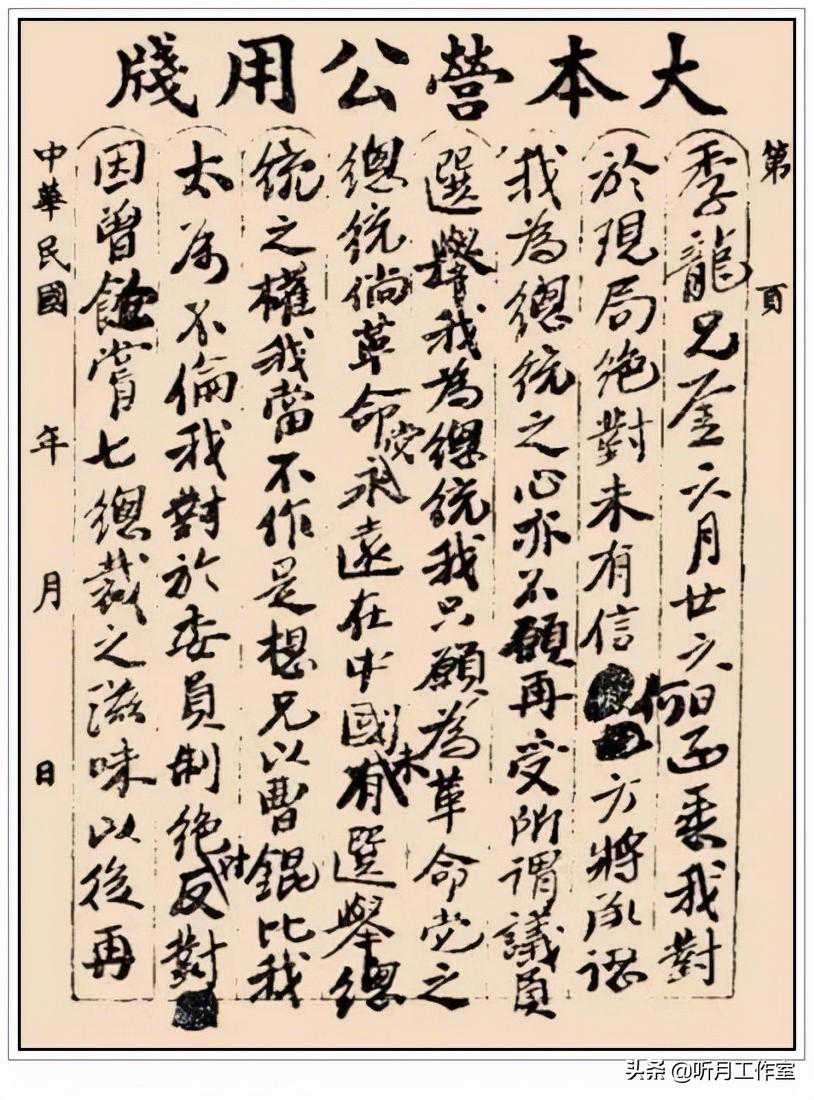 大本營公用牋
第 頁
季龍兄鑒六月廿六日函悉我對
於現局絕對未有信何方將承認
我為總統之心亦不願再受所謂議員
選舉我為總統我只願為革命党之
總統倘革命党永遠在中國未有選舉總
統之權我當不作是想兄以曹錕比我
太為不倫我對於委員制絕對反對
因曾飽嘗七總裁之滋味以後再
中華民國 年 月 日
头条 @听月工作室